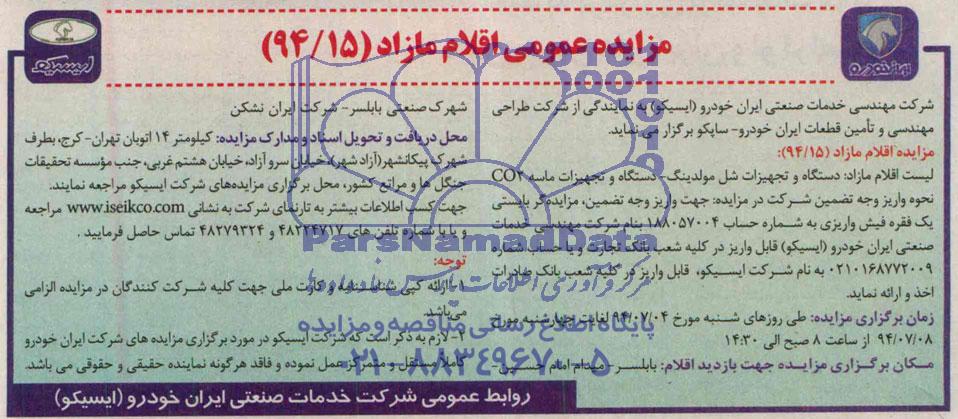 مزایده عمومی اقلام مازاد (۹۴/۱۵)
ایران خودرو
ایسیکو
شرکت مهندسی خدمات صنعتی ایران خودرو (ایسیکو) به نمایندگی از شرکت طراحی
مهندسی و تأمین قطعات ایران خودرو- ساپکو برگزار می نماید.
مزایده اقلام مازاد (۹۴/۱۵):
لیست اقلام مازاد: دستگاه و تجهیزات شل مولدینگ- دستگاه و تجهیزات ماسه CO۲
نحوه واریز وجه تضمین شرکت در مزایده: جهت واریز وجه تضمین، مزایده گر بایستی
یک فقره فیش واریزی به شماره حساب ۱۸۸۰۵۷۰۰۴ بنام شرکت مهندسی خدمات
صنعتی ایران خودرو (ایسیکو) قابل واریز در کلیه شعب بانک تجارت و یا حساب شماره
۰۲۱۰۱۶۸۷۷۲۰۰۹ به نام شرکت ایسیکو، قابل واریز در کلیه شعب بانک صادرات
اخذ و ارائه نماید.
زمان برگزاری مزایده: طی روزهای شنبه مورخ ۹۴/۰۷/۰۴ لغایت چهارشنبه مورخ
۹۴/۰۷/۰۸ از ساعت ۸ صبح الی ۱۴:۳۰
مکان برگزاری مزایده جهت بازدید اقلام: بابلسر- میدان امام حسین-
شهرک صنعتی بابلسر- شرکت ایران نشکن
محل دریافت و تحویل اسناد و مدارک مزایده: کیلومتر ۱۴ اتوبان تهران- کرج، بطرف
شهرک پیکانشهر(آزاد شهر)، خیابان سرو آزاد، خیابان هشتم غربی، جنب مؤسسه تحقیقات
جنگل ها و مراتع کشور، محل برگزاری مزایده‌های شرکت ایسیکو مراجعه نمایند.
جهت کسب اطلاعات بیشتر به تارنمای شرکت به نشانی www.iseikco.com مراجعه
و یا با شماره تلفن های ۴۸۲۲۴۷۱۷ و ۴۸۲۷۹۳۲۴ تماس حاصل فرمایید .
توجه:
۱- ارائه کپی شناسنامه و کارت ملی جهت کلیه شرکت کنندگان در مزایده الزامی
می‌باشد.
۲- لازم به ذکر است که شرکت ایسیکو در مورد برگزاری مزایده های شرکت ایران خودرو
کاملا مستقل و متمرکز عمل نموده و فاقد هرگونه نماینده حقیقی و حقوقی می باشد.
روابط عمومی شرکت خدمات صنعتی ایران خودرو (ایسیکو)
ParsNamadData
پایگاه اطلاع رسانی مناقصه و مزایده
۰۲۱-۸۸۳۴۹۶۷۰-۵